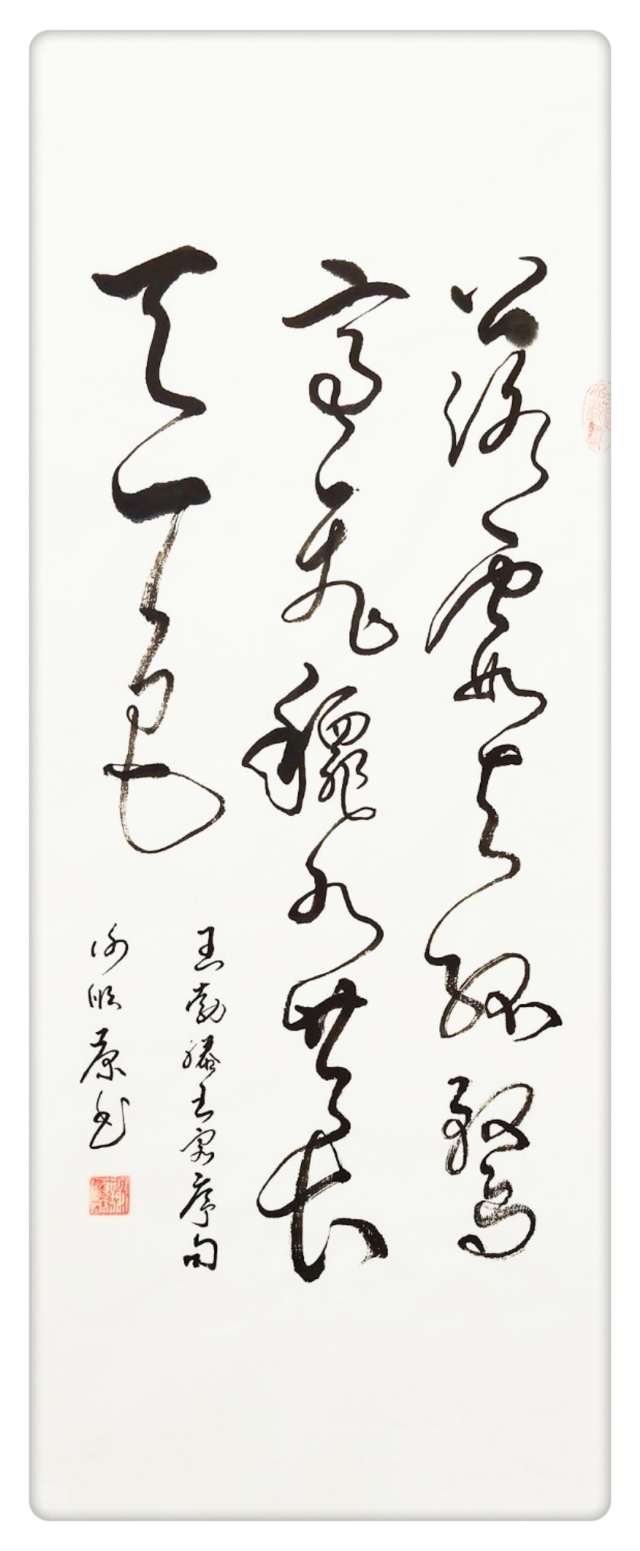 落霞与孤鹜
齐飞龝水共长
天一色
王勃滕王阁序句
书